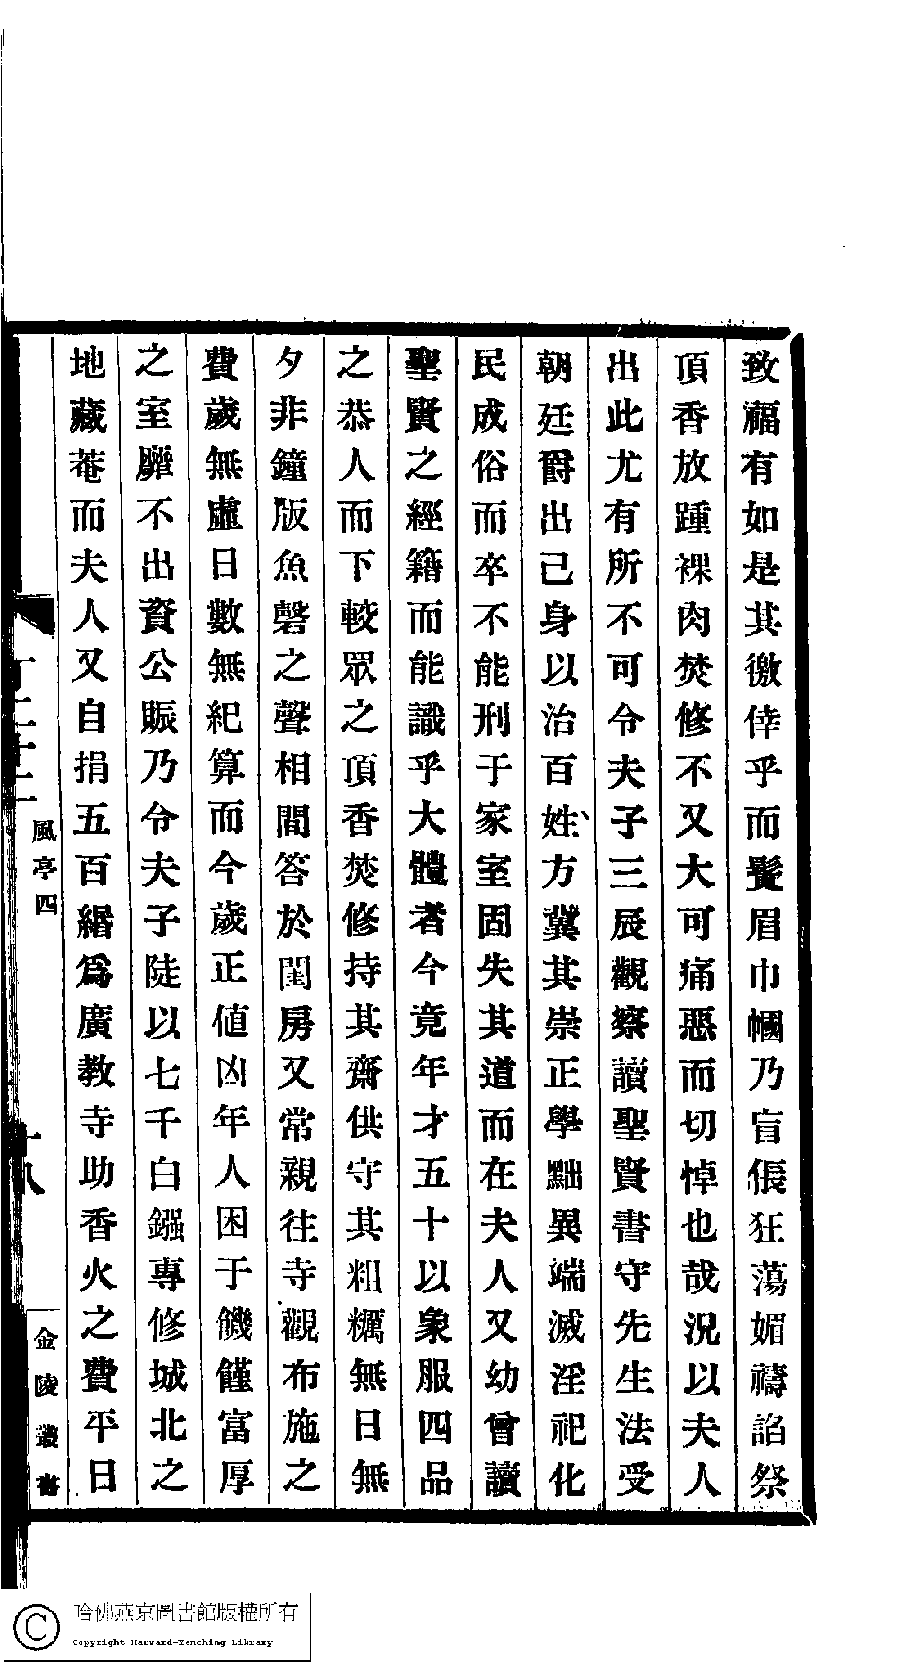 致福有如是其徼倖乎而鬓眉巾幗乃盲倀狂蕩媚禱諂祭
頂香放踵裸肉焚修不又大可痛惡而切悼也哉況以夫人
出此尤有所不可令夫子三辰觀察讀聖賢書守先生法受
朝廷爵出己身以治百姓方冀其崇正學黜異端滅淫祀化
民成俗而卒不能刑于家室固失其道而在夫人又幼曾讀
聖賢之經籍而能識乎大體者今竟年才五十以象服四品
之恭人而下較眾之頂香焚修持其齋供守其粗糲無日無
夕非鐘版魚磬之聲相間答於閨房又常親往寺觀布施之
費歲無虛日數無紀算而今歲正値凶年人困于饑饉富厚
之室靡不出資公賑乃令夫子陡以七千白鏹專修城北之
地藏菴而夫人又自捐五百緡爲廣教寺助香火之費平日
風亭四
十八
金陵叢書
哈佛燕京圖書館版權所有
Copyright Harvard-Yenching Library